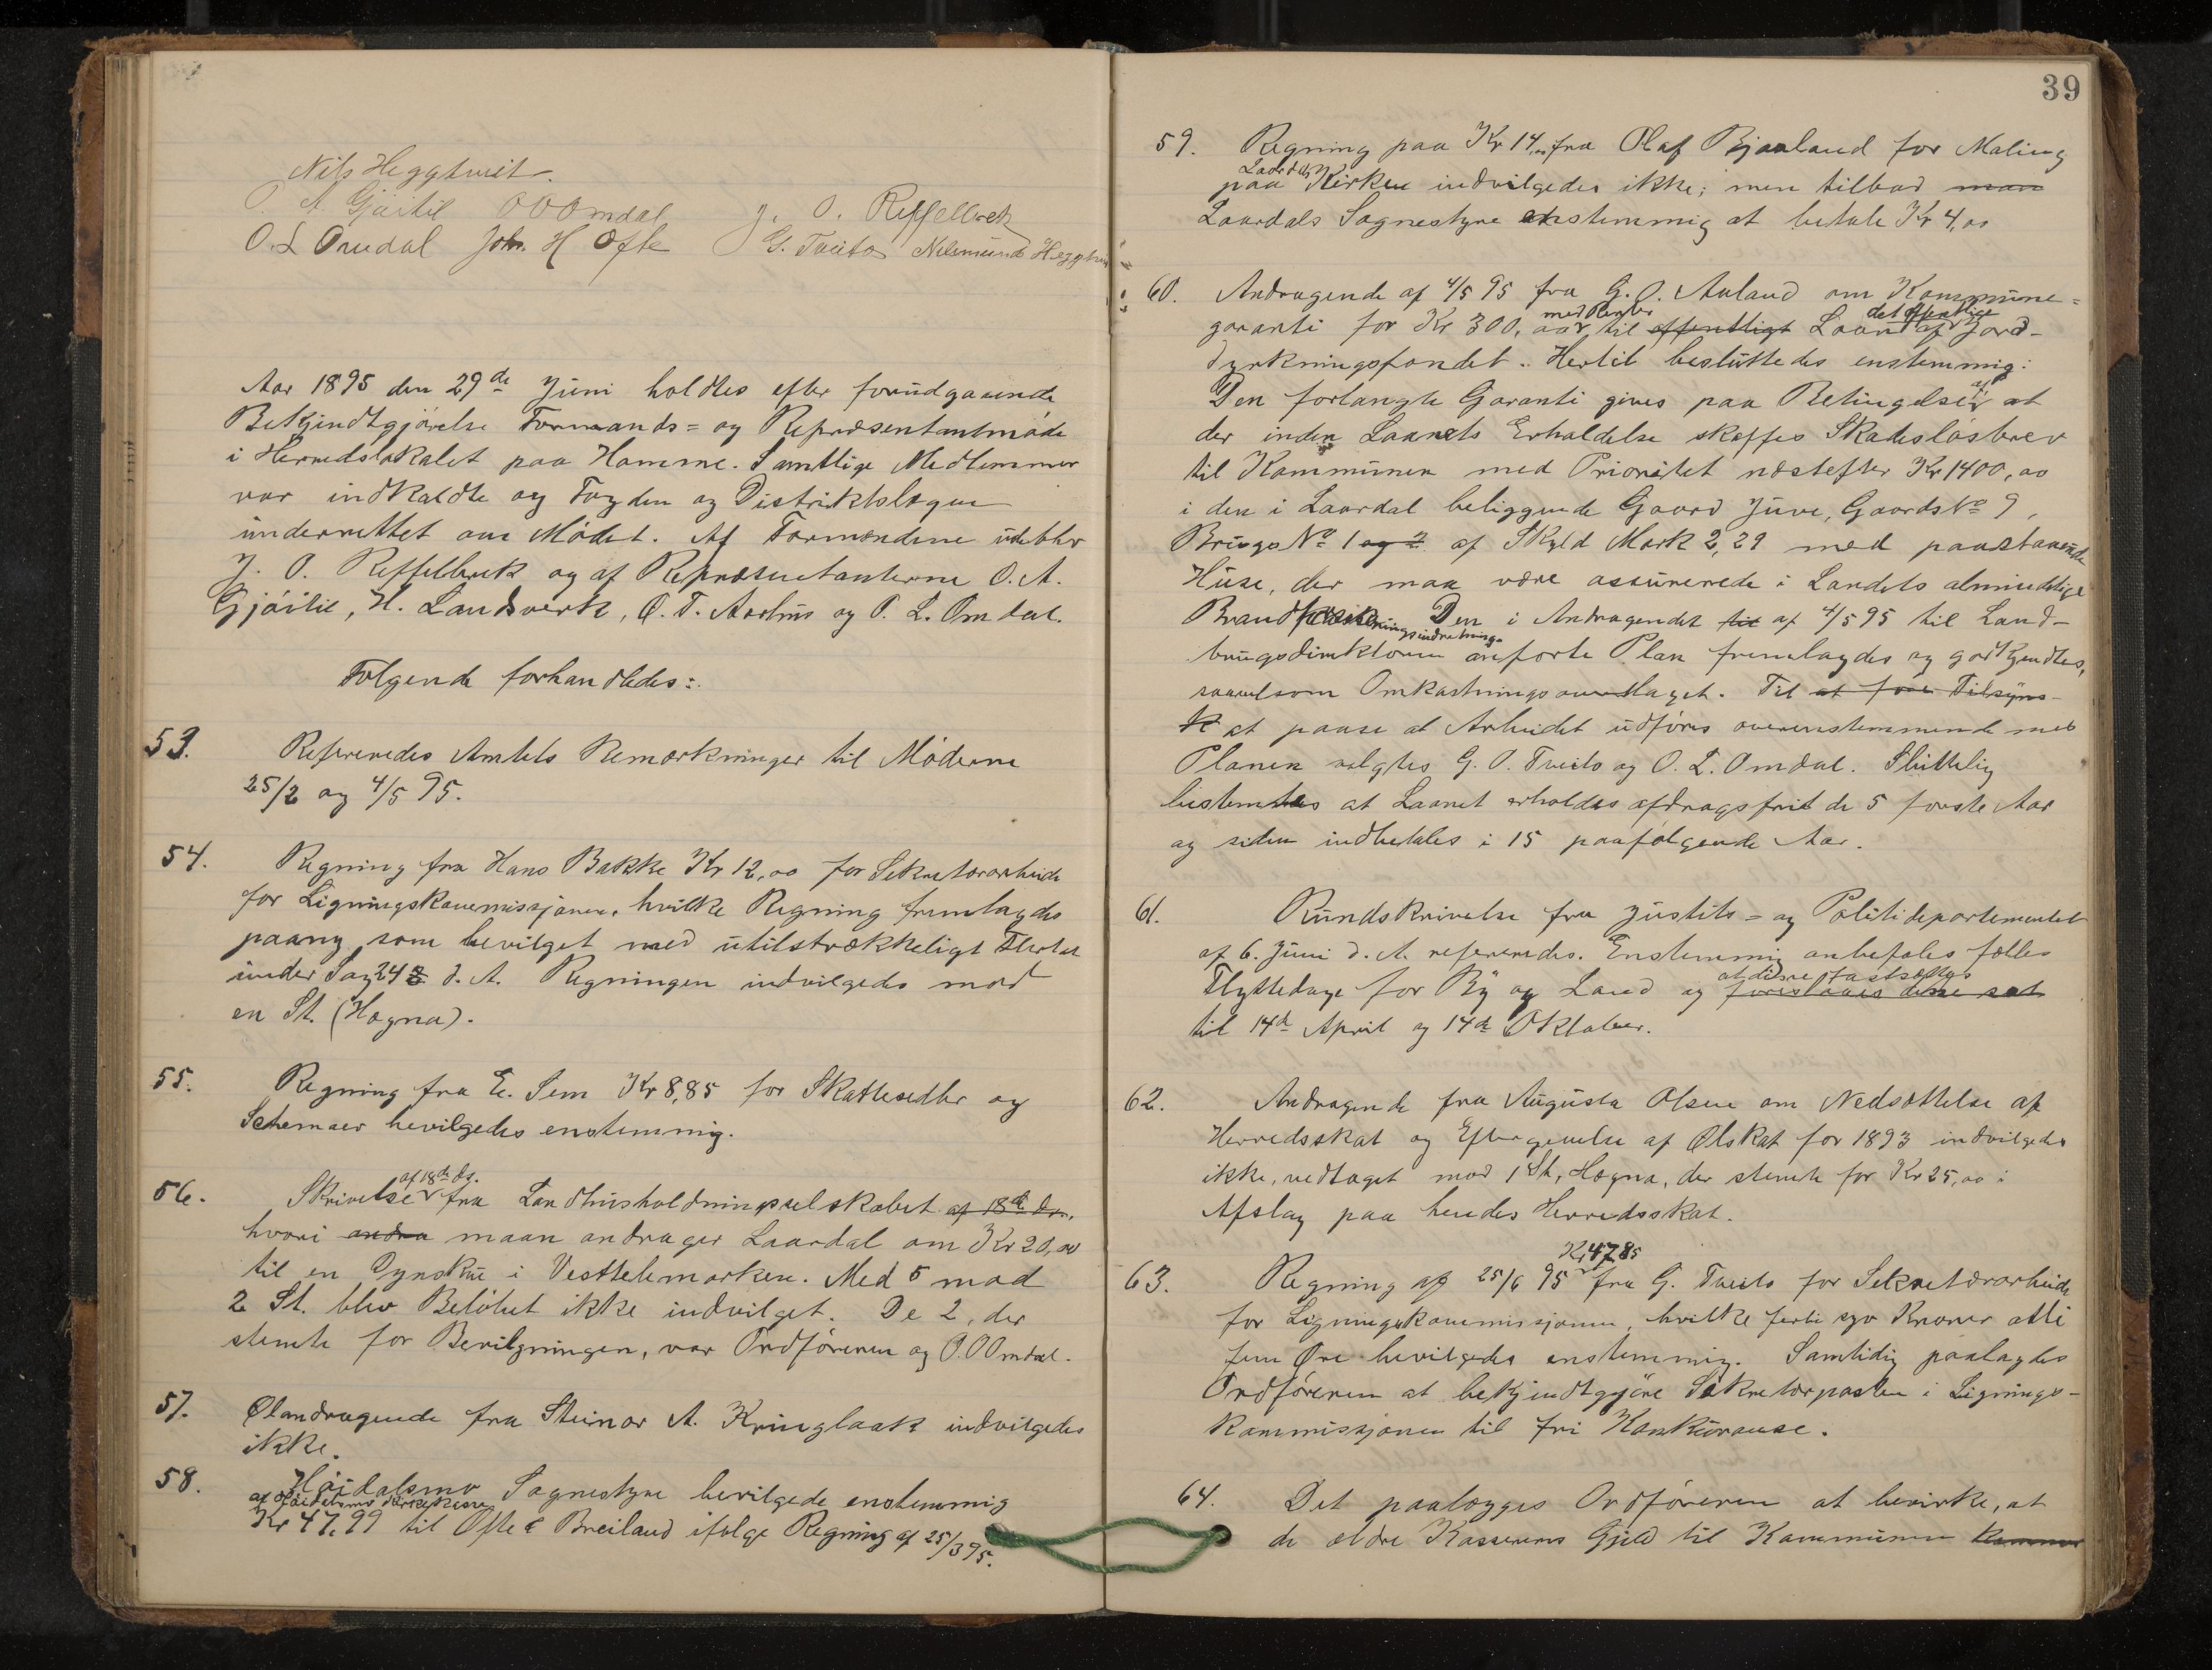 Nils Heggtveit.
O. A. Gjøitil O O Omdal J. O. Reffelbæk
O. L Omdal Joh. H Ofte G. Tveito Nelsmund Heggtveit
Aar 1895 den 29de Juni holdtes efter forudgaaende
Bekjendtgjørelse Formands= og Repræsentantmøde
i Herredslokalet paa Hamme. Samtlige Medlemmer
var indkaldte og Fogden og Distriktslægen
underrettet om Mødet. Af Formændene udeblev
J. O. Reffelbæk og af Repræsentanterne O. A.
Gjøitil, H. Landsverk, O. T. Aarhus og O. L. Omdal.
Følgende forhandledes:
53. Refereredes Amtets Bemærkninger til Møderne
25/2 og 4/5 95.
54. Regning fra Hans Bakke Kr 12,00 for Sekretærarbeide
for Ligningskommissjonen, hvilke Regning fremlagdes
paany som bevilget med utilstrækkeligt Flertal
under Sag 24 d. A. Regningen indvilgedes mod
en St. (Høgna).
55. Regning fra E. Sem Kr 8,85 for Skattesedler og
Schemaer bevilgedes enstemmig.
56. Skrivelse af 18de ds. fra Landhusholdningsselskabet af 18de ds.
hvori andra maan andrager Laardal om Kr 20,00
til en Dynskue i Vesttelemarken. Med 5 mod
2 St. blev Beløbet ikke indvilget. De 2, der
stemte for Bevilgningen, var Ordføreren og O.O Omdal.
57. Ølandragende fra Steinar A. Kringlaak indvilgedes
ikke.
58. Høidalsmo Sognestyre bevilgede enstemmig
af Høidalsmo Kirkekasse
Kr 47,99 til Ofte & Breiland ifølge Regning af 25/3 95.
39
59. Regning paa Kr 14,00 fra Olaf Bjaaland for Maling
paa Laardals Kirke indvilgedes ikke; men tilbød man
Laardals Sognestyre enstemmig at betale Kr 4,00
60. Andragende af 4/5 95 fra G. O. Aaland om Kommune=
garanti for Kr 300,00 med Renter til offentligt Laan af det offentlige Jord-
dyrkningsfondet. Hertil besluttedes enstemmig:
Den forlangte Garanti gives paa Betingelse af at
der inden Laanets Erholdelse skaffes Skadesløsbrev
til Kommunen med Prioritet næstefter Kr 1400,00
i den i Laardal beliggende Gaard Juve, Gaards No 9,
Brugs No 1 og 2 af Skyld Mark 2,29 med paastaaende
Huse, der maa være assurerede i Landets almindelige
Brandforsikringsindretning. Den i Andragendet til af 4/5 95 til Land-
brugsdirektøren anførte Plan fremlagdes og godkjendtes,
saavelsom Omkostningsoverslaget. Til at føre Tilsyns
K at paase at Arbeidet udføres overensstemmende med
Planen valgtes G. O. Tveito og O. L. Omdal. Sluttelig
bestemtes at Laanet erholdes afdragsfrit de 5 første Aar
og siden indbetales i 15 paafølgende Aar.
61. Rundskrivelse fra Justits= og Politidepartementet
af 6. Juni d. A. refereredes. Enstemmig anbefales fælles
Flyttedage for By og Land og foreslaaes disse sat at disse fastsættes
til 14de April og 14de Oktober.
62. Andragende fra Augusta Olsen om Nedsættelse af
Herredsskat og Eftergivelse af Ølskat for 1893 indvilgedes
ikke, vedtaget mod 1 St, Høgna, der stemte for Kr 25,00 i
Afslag paa hendes Herredsskat.
63. Regning af 25/6 95 Kr 47,85 fra G. Tveito for Sekretærarbeide
for Ligningskommissjonen, hvilke førti syv Kroner otti
fem Øre bevilgedes enstemmig. Samtidig paalagdes
Ordføreren at bekjendtgjøre Sekretærposten i Lignings-
kommissjonen til fri Konkurranse.
64. Det paalægges Ordføreren at bevirke, at
de ældre Kassereres Gjeld til Kommunen